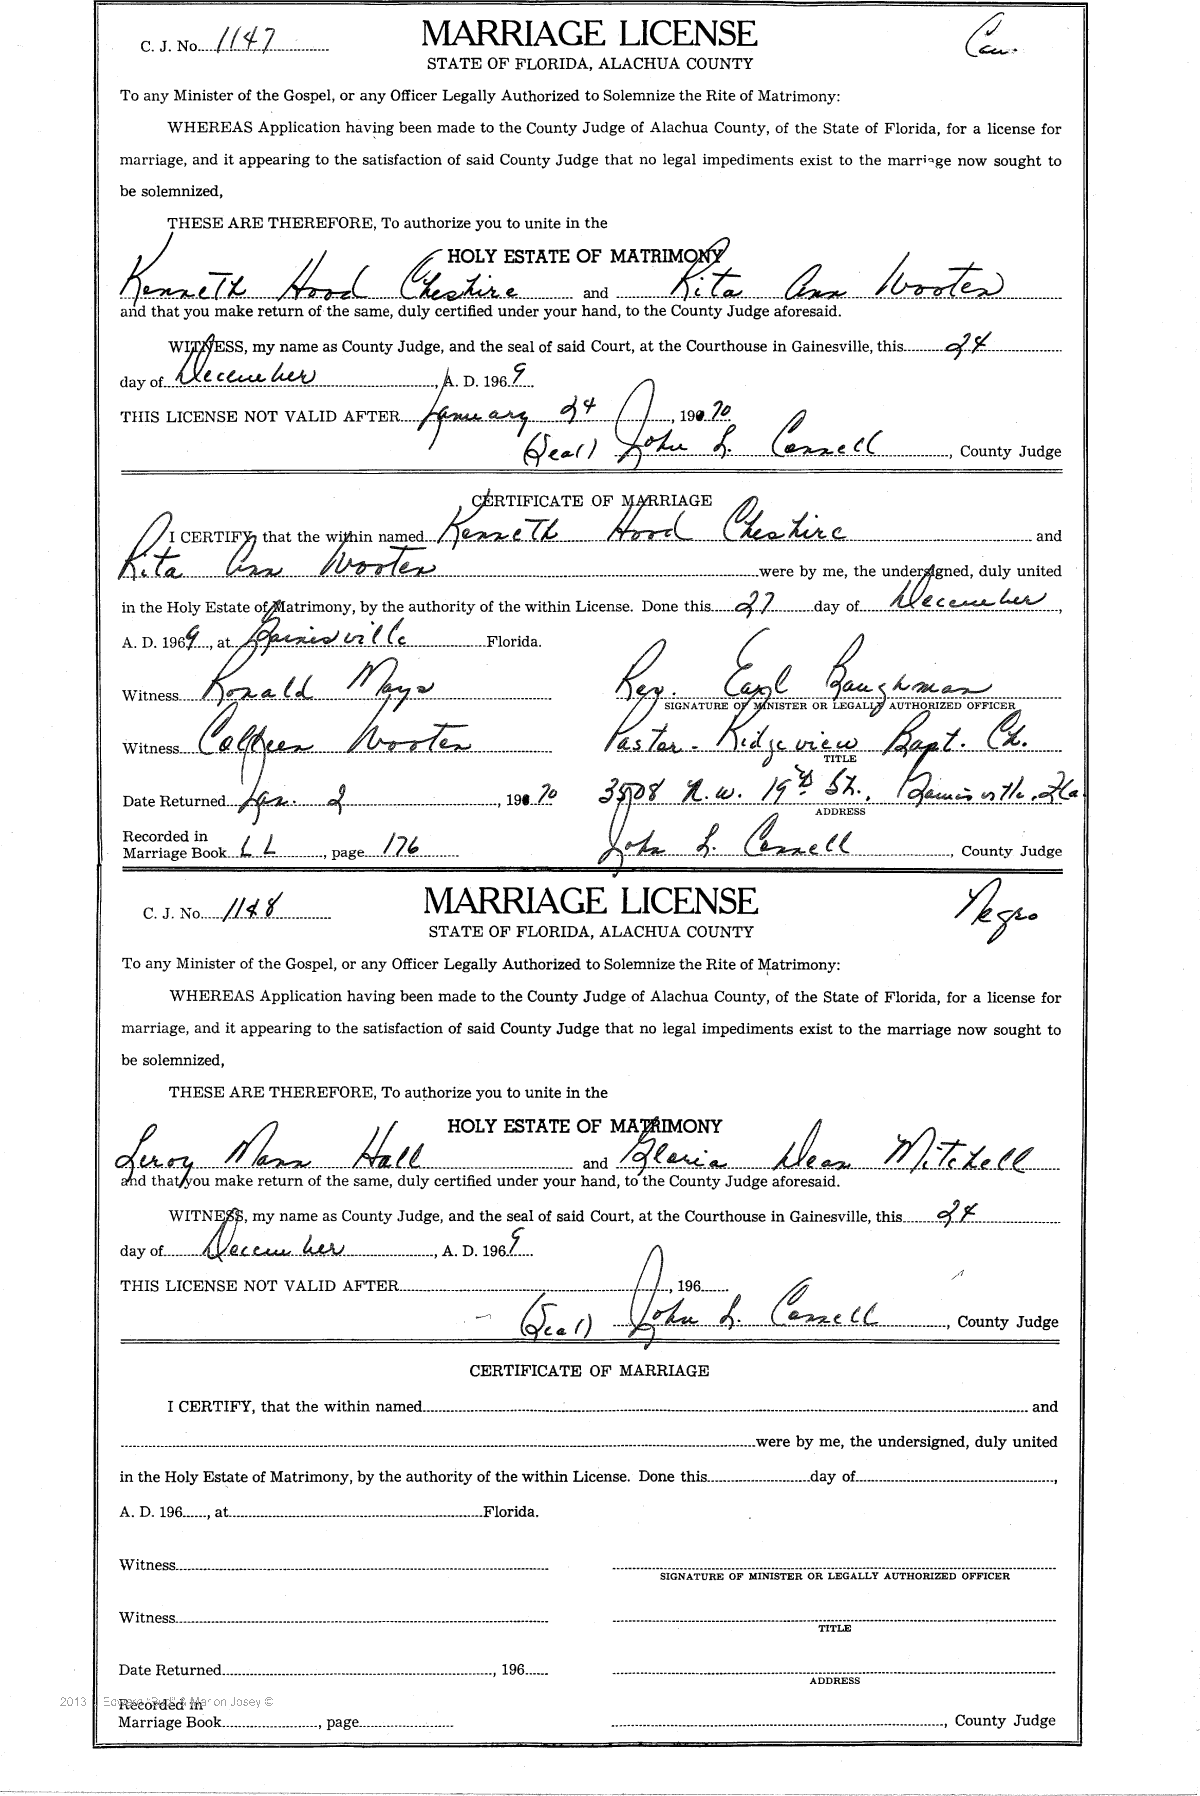 C. J. No. 1147 MARRIAGE LICENSE Cau.
STATE OF FLORIDA, ALACHUA COUNTY
To any Minister of the Gospel, or any Officer Legally Authorized to Solemnize the Rite of Matrimony:
WHEREAS Application having been made to the County Judge of Alachua County, of the State of Florida, for a license for
marriage, and it appearing to the satisfaction of said County Judge that no legal impediments exist to the marriage now sought to
be solemnized,
THESE ARE THEREFORE, To authorize you to unite in the
HOLY ESTATE OF MATRIMONY
Kenneth Hood Cheshire and Rita Ann Wooten
and that you make return of the same, duly certified under your hand, to the County Judge aforesaid.
WITNESS, my name as County Judge, and the seal of said Court, at the Courthouse in Gainesville, this 24
day of December, A. D. 1969
THIS LICENSE NOT VALID AFTER January 24, 1970
(Seal) John L. Connell, County Judge
CERTIFICATE OF MARRIAGE
I CERTIFY, that the within named Kenneth Hood Cheshire and
Rita Ann Wooten were by me, the undersigned, duly united
in the Holy Estate of Matrimony, by the authority of the within License. Done this 27 day of December,
A. D. 1969, at Gainesville Florida.
Witness Ronald Mays Rev. Earl Baughman
SIGNATURE OF MINISTER OR LEGALLY AUTHORIZED OFFICER
Witness Colleen Wooten Pastor - Ridgeview Bapt. Ch.
TITLE
Date Returned Jan. 2, 1970 3508 N.W. 19th St., Gainesville, Fla
ADDRESS
Recorded in
Marriage Book LL, page 176 John L. Connell, County Judge
C. J. No. 1148 MARRIAGE LICENSE Negro
STATE OF FLORIDA, ALACHUA COUNTY
To any Minister of the Gospel, or any Officer Legally Authorized to Solemnize the Rite of Matrimony:
WHEREAS Application having been made to the County Judge of Alachua County, of the State of Florida, for a license for
marriage, and it appearing to the satisfaction of said County Judge that no legal impediments exist to the marriage now sought to
be solemnized,
THESE ARE THEREFORE, To authorize you to unite in the
HOLY ESTATE OF MATRIMONY
Leroy Mann Hall and Gloria Dean Mitchell
and that you make return of the same, duly certified under your hand, to the County Judge aforesaid.
WITNESS, my name as County Judge, and the seal of said Court, at the Courthouse in Gainesville, this 24
day of December, A. D. 1969
THIS LICENSE NOT VALID AFTER, 196
(Seal) John L. Connell, County Judge
CERTIFICATE OF MARRIAGE
I CERTIFY, that the within named and
were by me, the undersigned, duly united
in the Holy Estate of Matrimony, by the authority of the within License. Done this day of,
A. D. 196, at Florida.
Witness
SIGNATURE OF MINISTER OR LEGALLY AUTHORIZED OFFICER
Witness
TITLE
Date Returned, 196
ADDRESS
2013 Josey ©
Recorded in
Marriage Book, page, County Judge